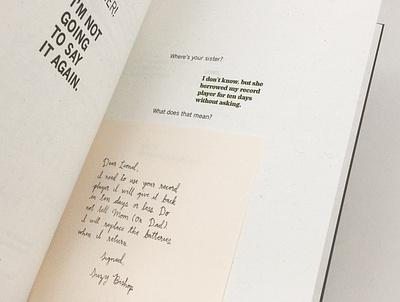 I'M NOT
GOING
TO SAY
IT AGAIN.
Where's your sister?
I don't know, but she
borrowed my record
player for ten days
without asking.
What does that mean?
Dear Lionel,
I need to use your record
player. I will give it back
in ten days or less. Do
not tell Mom (or Dad).
I will replace the batteries
when I return.
Signed,
Suzy Bishop